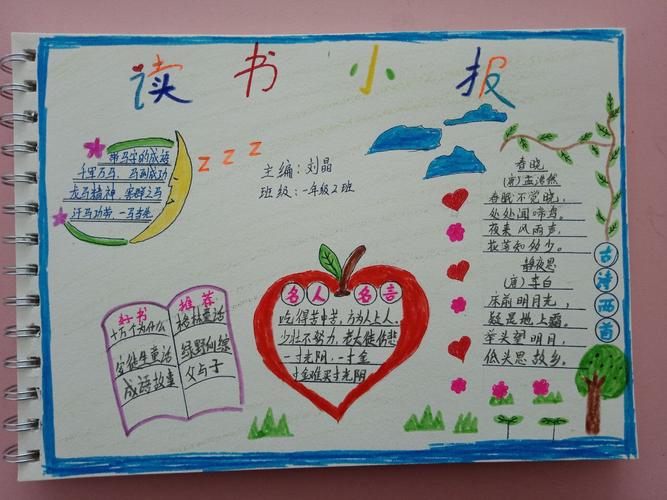 读书小报
带马字的成语
千军万马、马到成功
龙马精神、害群之马
汗马功劳、一马当先
z z z
主编:刘晶
班级:一年级2班
春晓
(唐)孟浩然
春眠不觉晓,
处处闻啼鸟。
夜来风雨声,
花落知多少。
静夜思
(唐)李白
床前明月光,
疑是地上霜。
举头望明月,
低头思故乡。
古诗两首
好书
十万个为什么
安徒生童话
成语故事
推荐
格林童话
绿野仙踪
父与子
名人名言
吃得苦中苦,方为人上人。
少壮不努力,老大徒伤悲
一寸光阴,一寸金
寸金难买寸光阴。